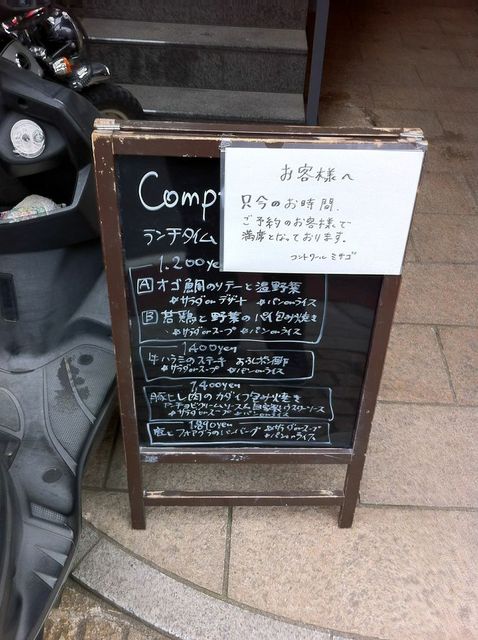 お客様へ
只今のお時間、
ご予約のお客様で
満席となっております。
コントワール ミサゴ
Comp
ランチタイム
1.200ye
A オゴ鯛のソテーと温野菜
サラダorデザート パンorライス
B 若鶏と野菜のパイ包み焼き
サラダorスープ パンorライス
1400yen
牛ハラミのステーキ おろしポン酢
サラダorスープ パンorライス
1,400yen
豚ヒレ肉のカダイフ包み焼き
サラダorスープ パンorライス
1.890yen
フォアグラのハンバーグ サラダorスープ
パンorライス